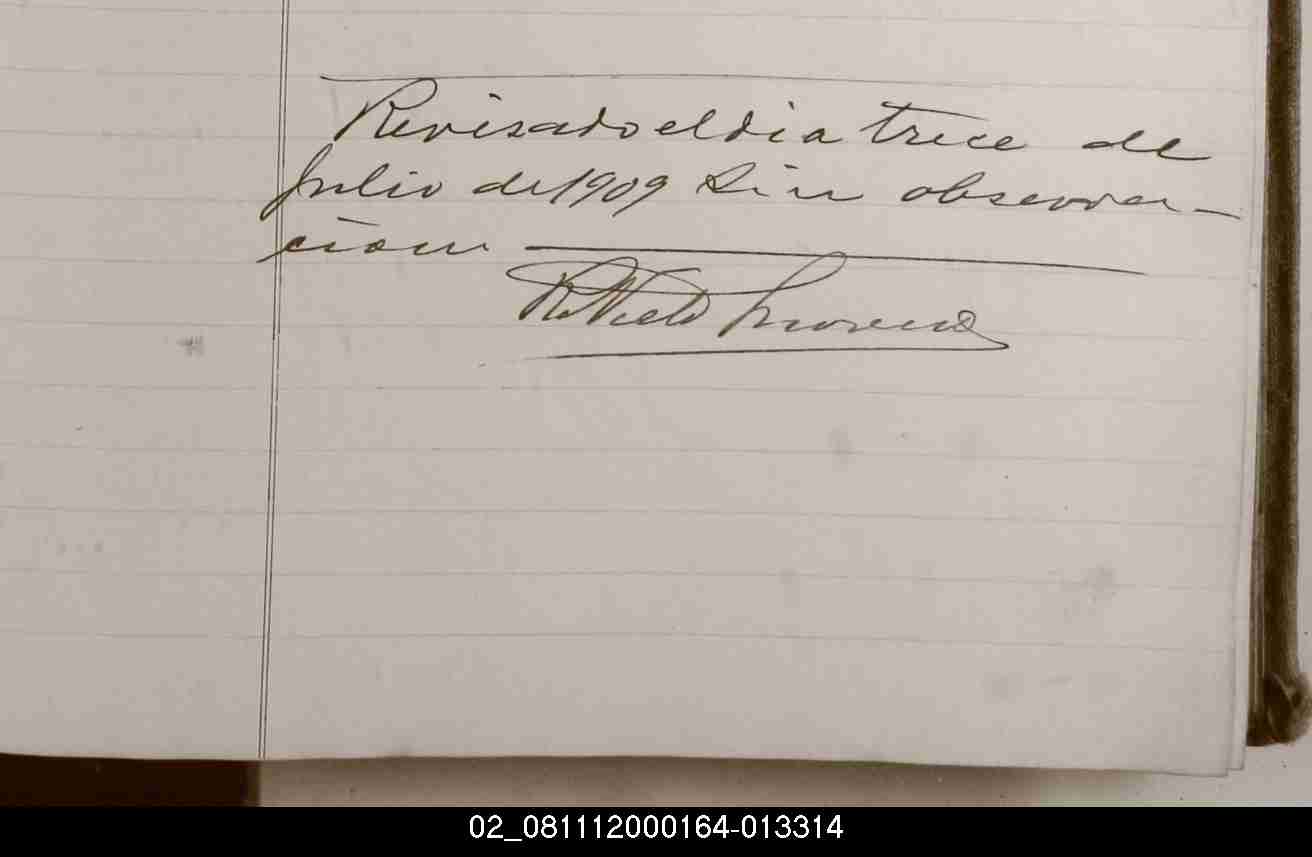 Revisado el dia trece de
Julio de 1909 Sin observa-
cion
R. Nieto Moreno
02_081112000164-013314